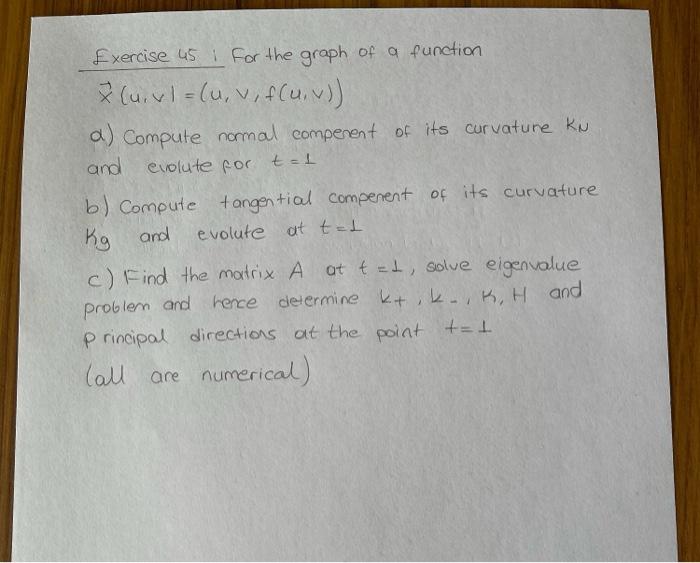 Exercise 45 : For the graph of a function
x⃗ (u,v) = (u, v, f(u,v))
a) Compute normal compenent of its curvature KN
and evolute for t = 1
b) Compute tangential compenent of its curvature
Kg and evolute at t = 1
c) Find the matrix A at t = 1, solve eigenvalue
problem and hence determine k+, k-, K, H and
principal directions at the point t = 1
(all are numerical)